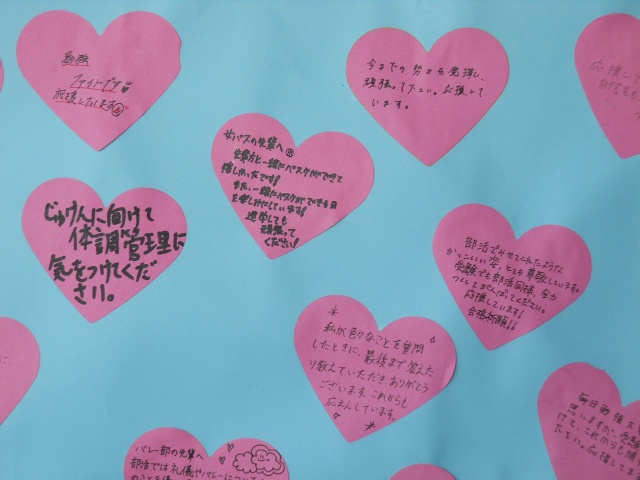 勉強
ファイトです
応援してます
今までの努力を発揮し、
頑張って下さい。応援して
います。
応援し
自信をも
女バスの先輩へ
先輩方と一緒にバスケができて
嬉しかったです!
また、一緒にバスケができる日
を楽しみにしています!
進学しても
頑張って
ください!
じゅけんに向けて
体調管理に
気をつけてくだ
さい。
部活でみせてくれたような
かっこいい姿、とても尊敬しています。
受験でも部活同様、全力
つくしてがんばってください。
応援しています!
合格祈願!!
私が色々なことを質問
したときに、最後まで答えた
り教えていただきありがとう
ございます。これからも
応えんしています。
毎日勉強
思いますが、
けて、これからも頑
たさい。応援してま
バレー部の先輩へ
部活では礼儀やバレーについて
のことを